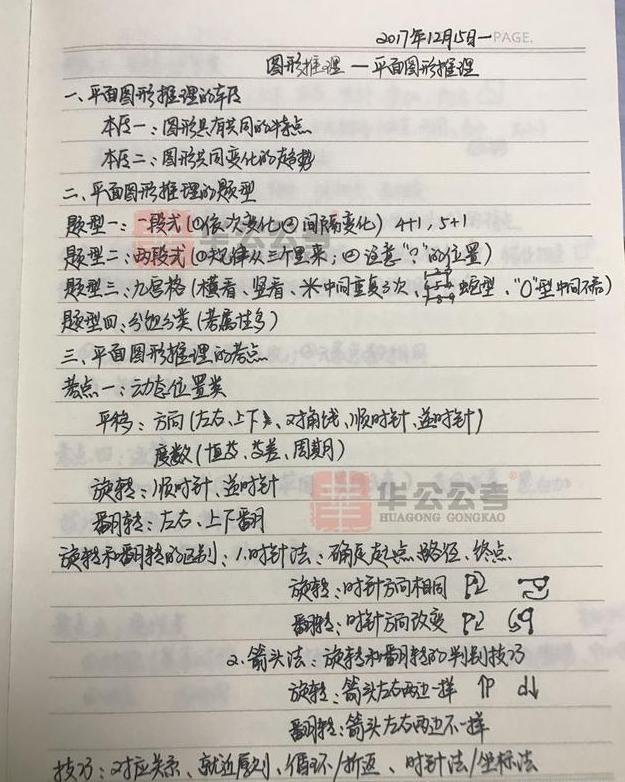 2017年12月15日一 PAGE.
图形推理 — 平面图形推理
一、平面图形推理的本质
本质一：图形具有共同的特点
本质二：图形共同变化的趋势
二、平面图形推理的题型
题型一：一段式(①依次变化②间隔变化) 4+1, 5+1
题型二：两段式(①规律从三个里来；②注意"?"的位置)
题型三：九宫格(横看、竖看、米中间重复3次、蛇型、"O"型中间不看)
题型四：分组分类(考属性多)
三、平面图形推理的考点
考点一：动态位置类
平移：方向(左右、上下、对角线、顺时针、逆时针)
度数(恒等、等差、周期)
旋转：顺时针、逆时针
翻转：左右、上下翻
华公公考®
HUAGONG GONGKAO
旋转和翻转的区别：1.时针法：确定起点、路径、终点
旋转：时针方向相同
翻转：时针方向改变
2.箭头法：旋转和翻转的判别技巧
旋转：箭头左右两边一样
翻转：箭头左右两边不一样
技巧：对应关系、就近原则、循环/折返、时针法/坐标法